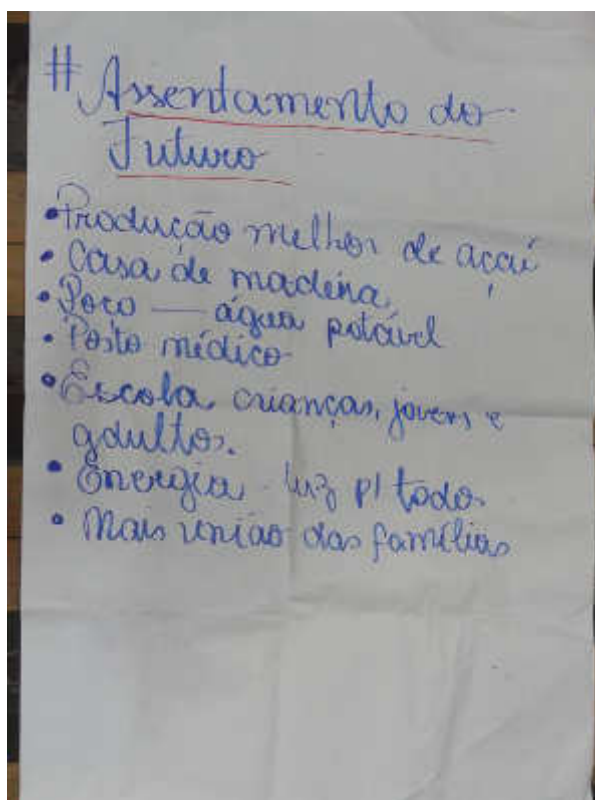 # Assentamento do
Futuro
• Produção melhor de açaí
• Casa de madeira,
• Poço — água potável
• Posto médico
• Escola, crianças, jovens e
adultos.
• Energia - luz p/ todos
• Mais união das famílias